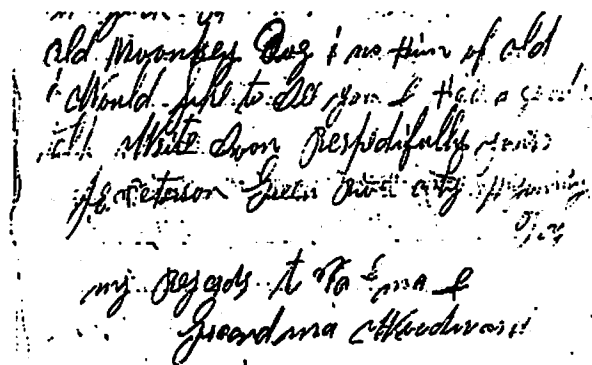 old Moonkey Dog & no thin of old
I Would Like to See you & Have a good
talk Write Soon Respedifully yours
J. E. Peterson Green River city Wyoming
my Regards to Pa & ma &
Grandma Woodward